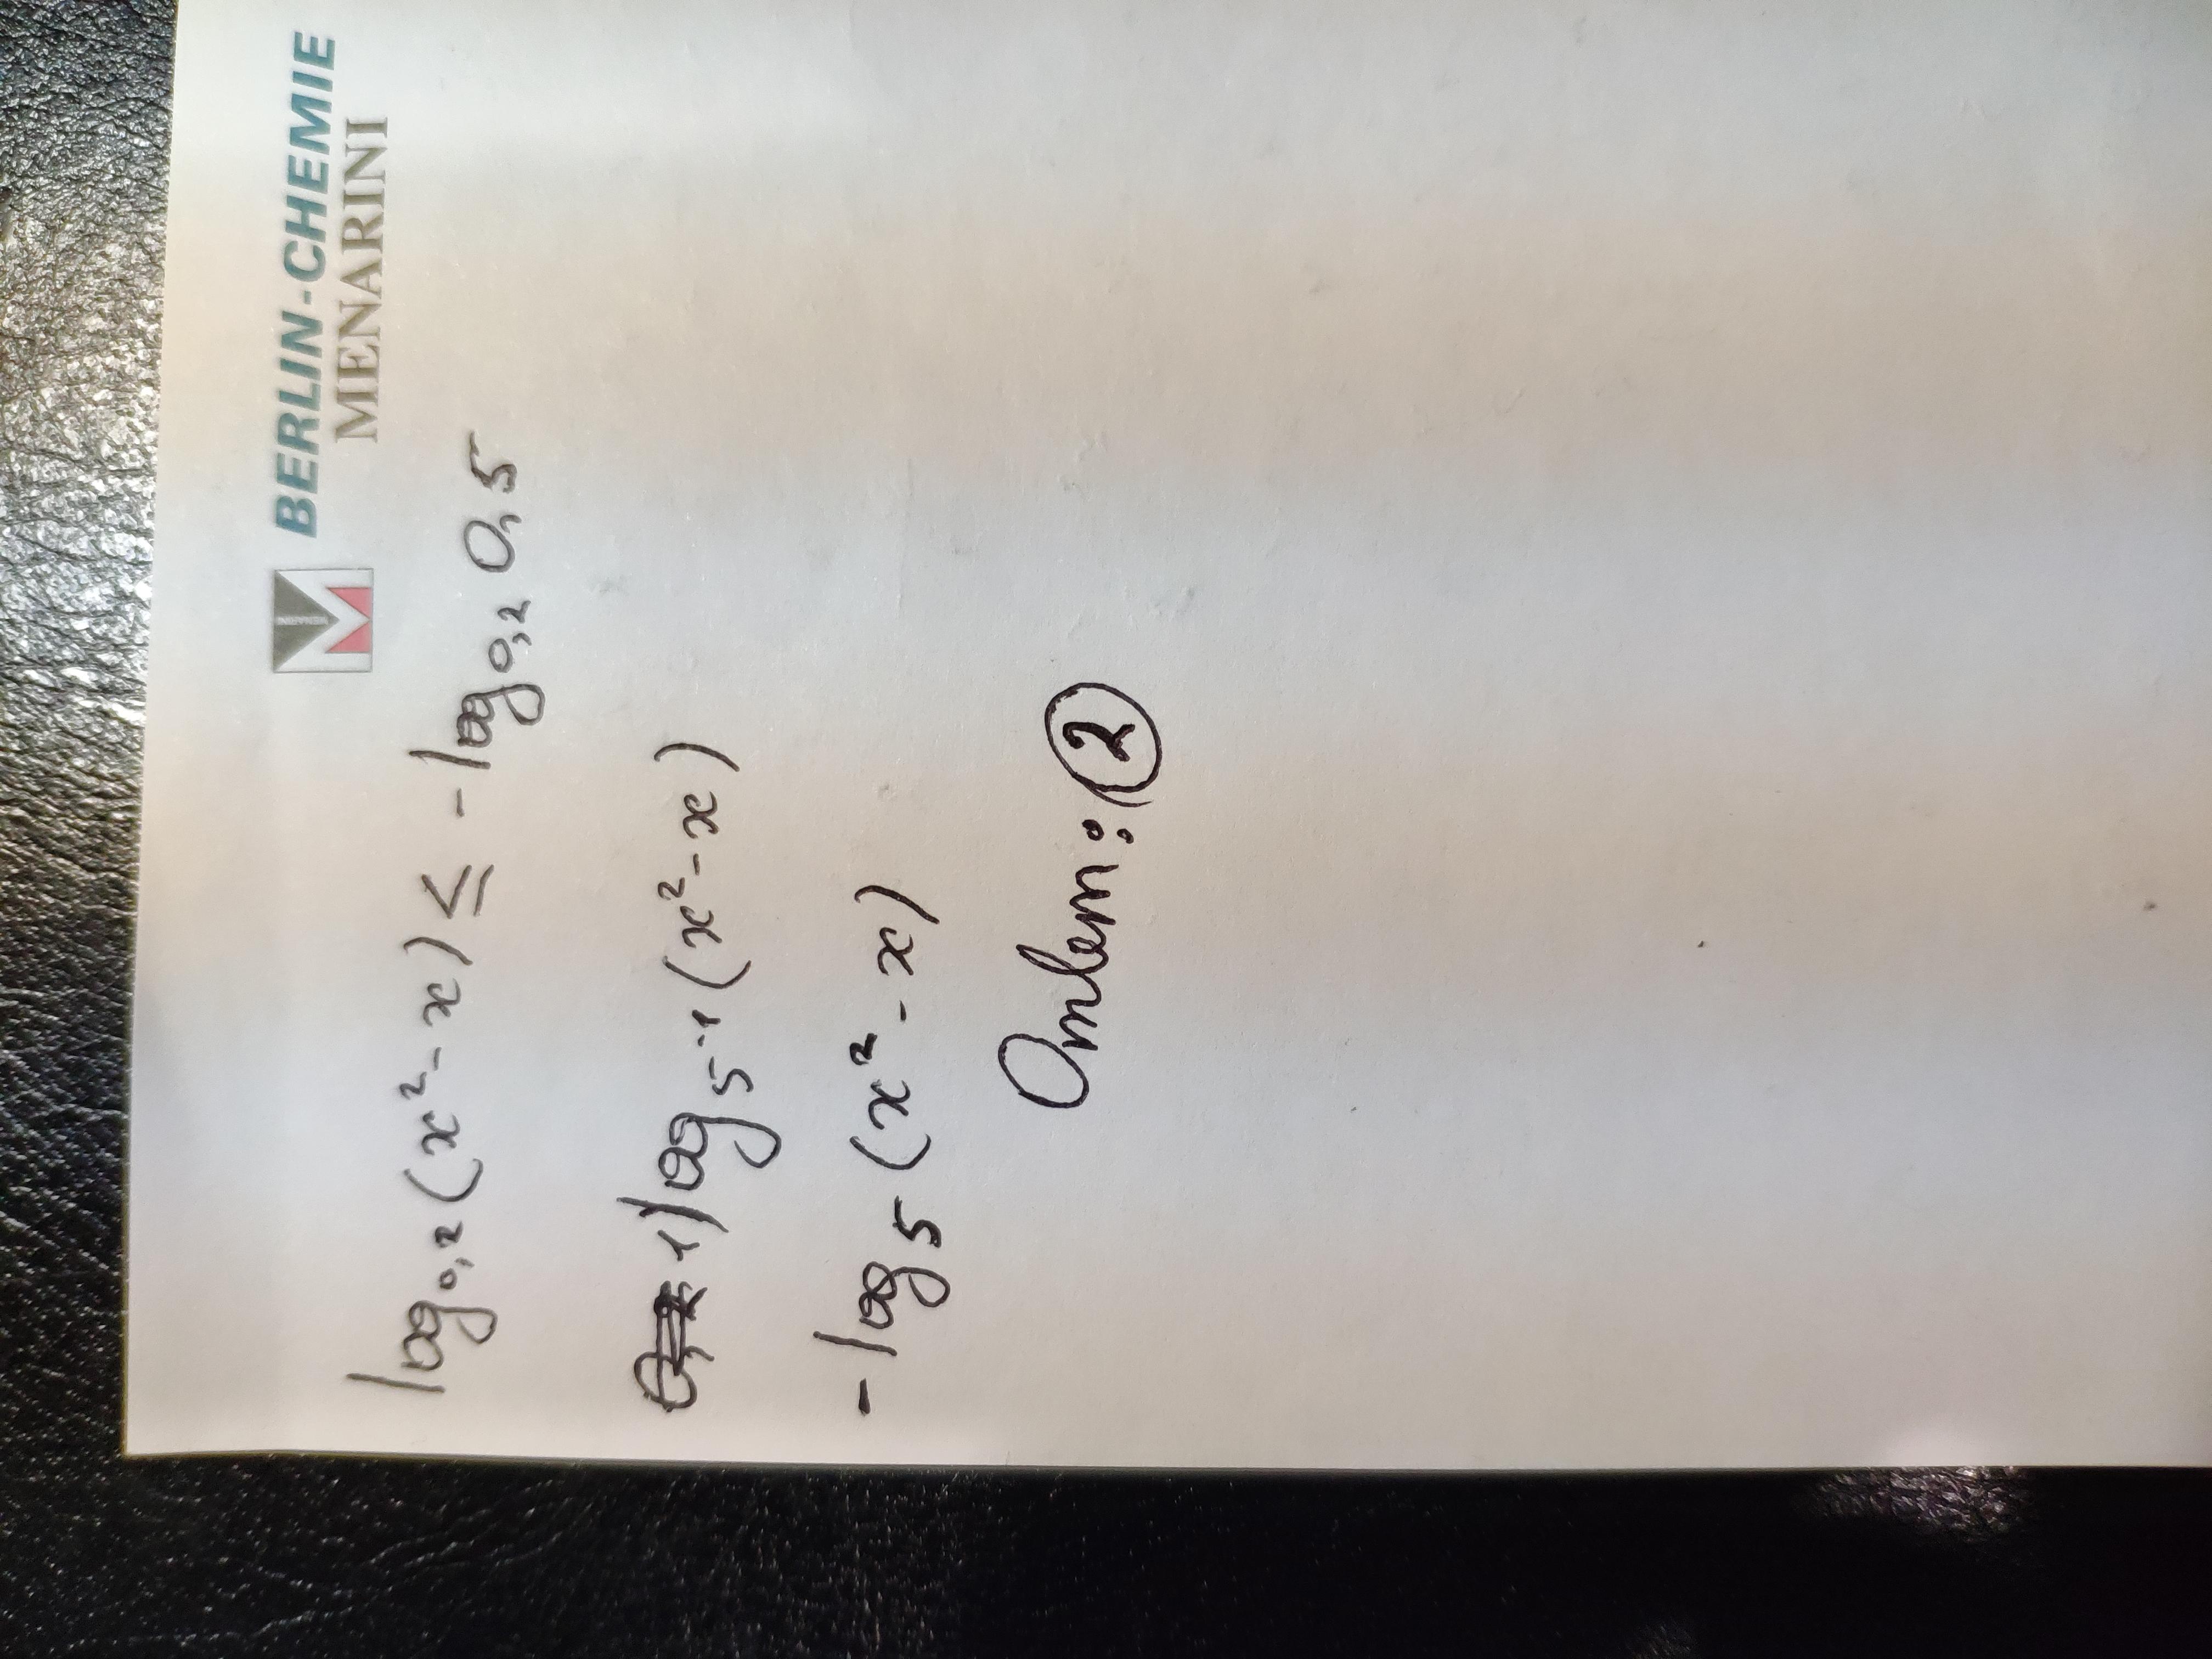 BERLIN-CHEMIE
MENARINI
log₀,₂(x²-x) ≤ -log₀,₂ 0,5
1) log₅⁻¹(x²-x)
-log₅(x²-x)
Ответ: 2